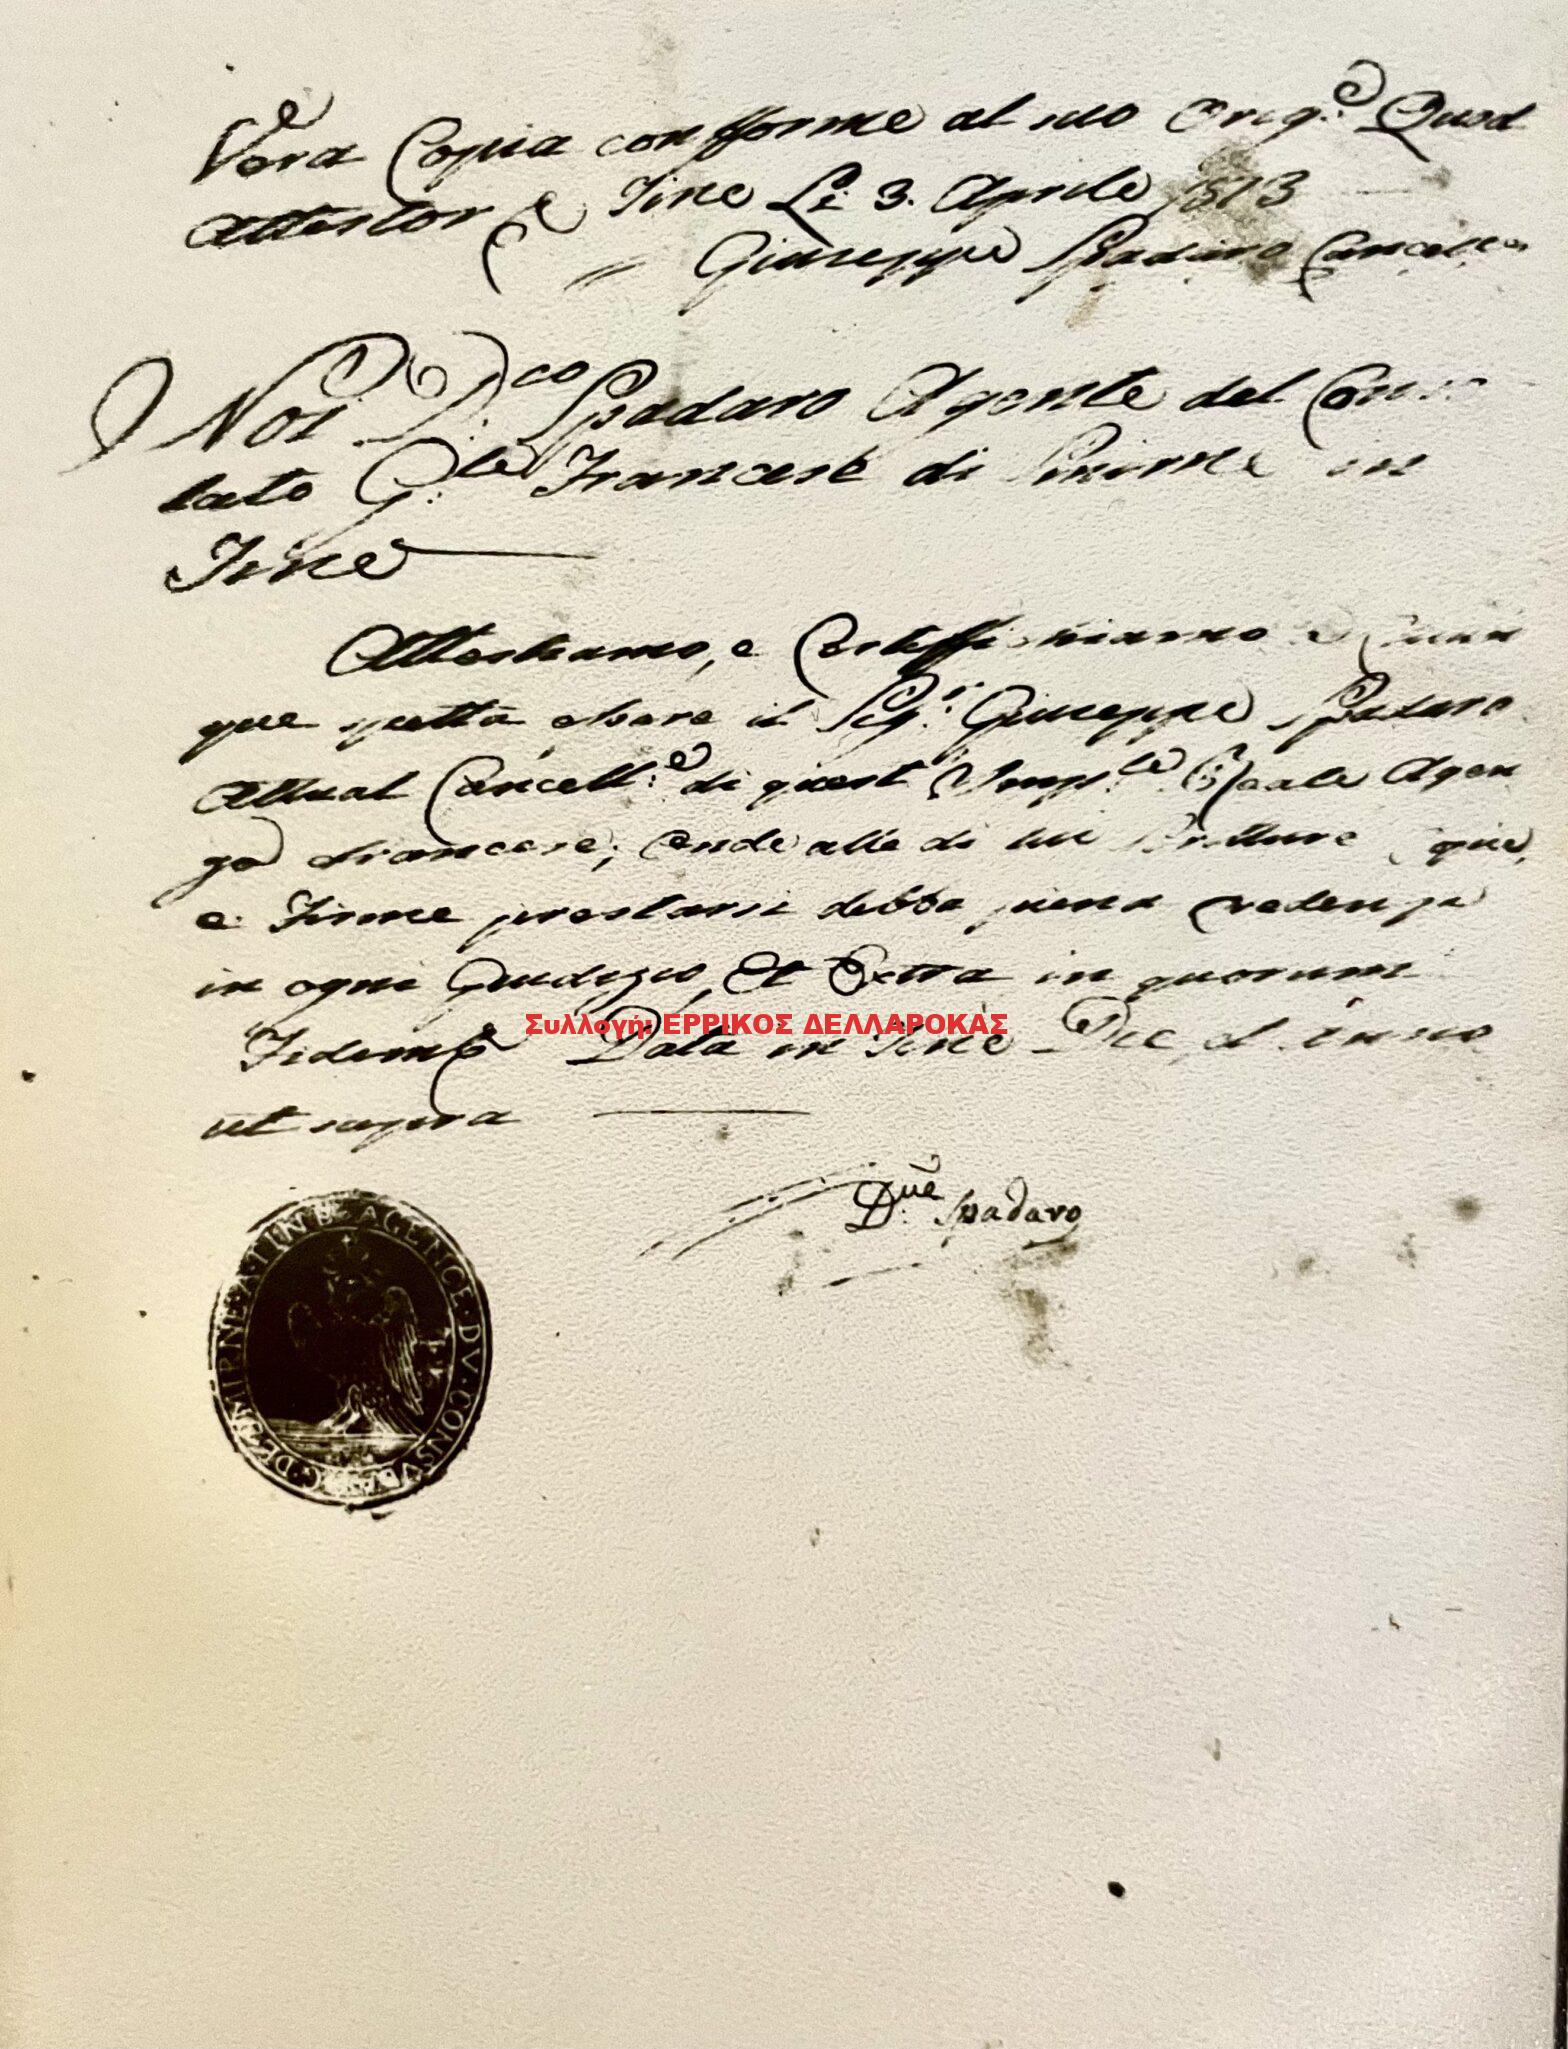 Vera Copia confforme al suo Orig.e Quod
Attestor & Tine Li 3. Aprile 1813
Giuseppe Spadaro Cancell
Noi D.co Spadaro Agente del Consu
lato G.le Francese di Smirne in
Tine
Attestiamo, e Certiffichiamo a
que spetta essere il Sig.r Giuseppe Spadaro
Attual Cancell.e di quest Imp.le Reale Agen
za Francese; onde alle di lui Scritture
e Firme prestarsi debba piena credenza
in ogni Giudizio, Et Extra in quorum
Συλλογή: ΕΡΡΙΚΟΣ ΔΕΛΛΑΡΟΚΑΣ
Fidem & Data in Tine Die, et Anno
ut supra
D.que Spadaro
AGENCE DV CONSVLAT G DE SMIRNE A TINE